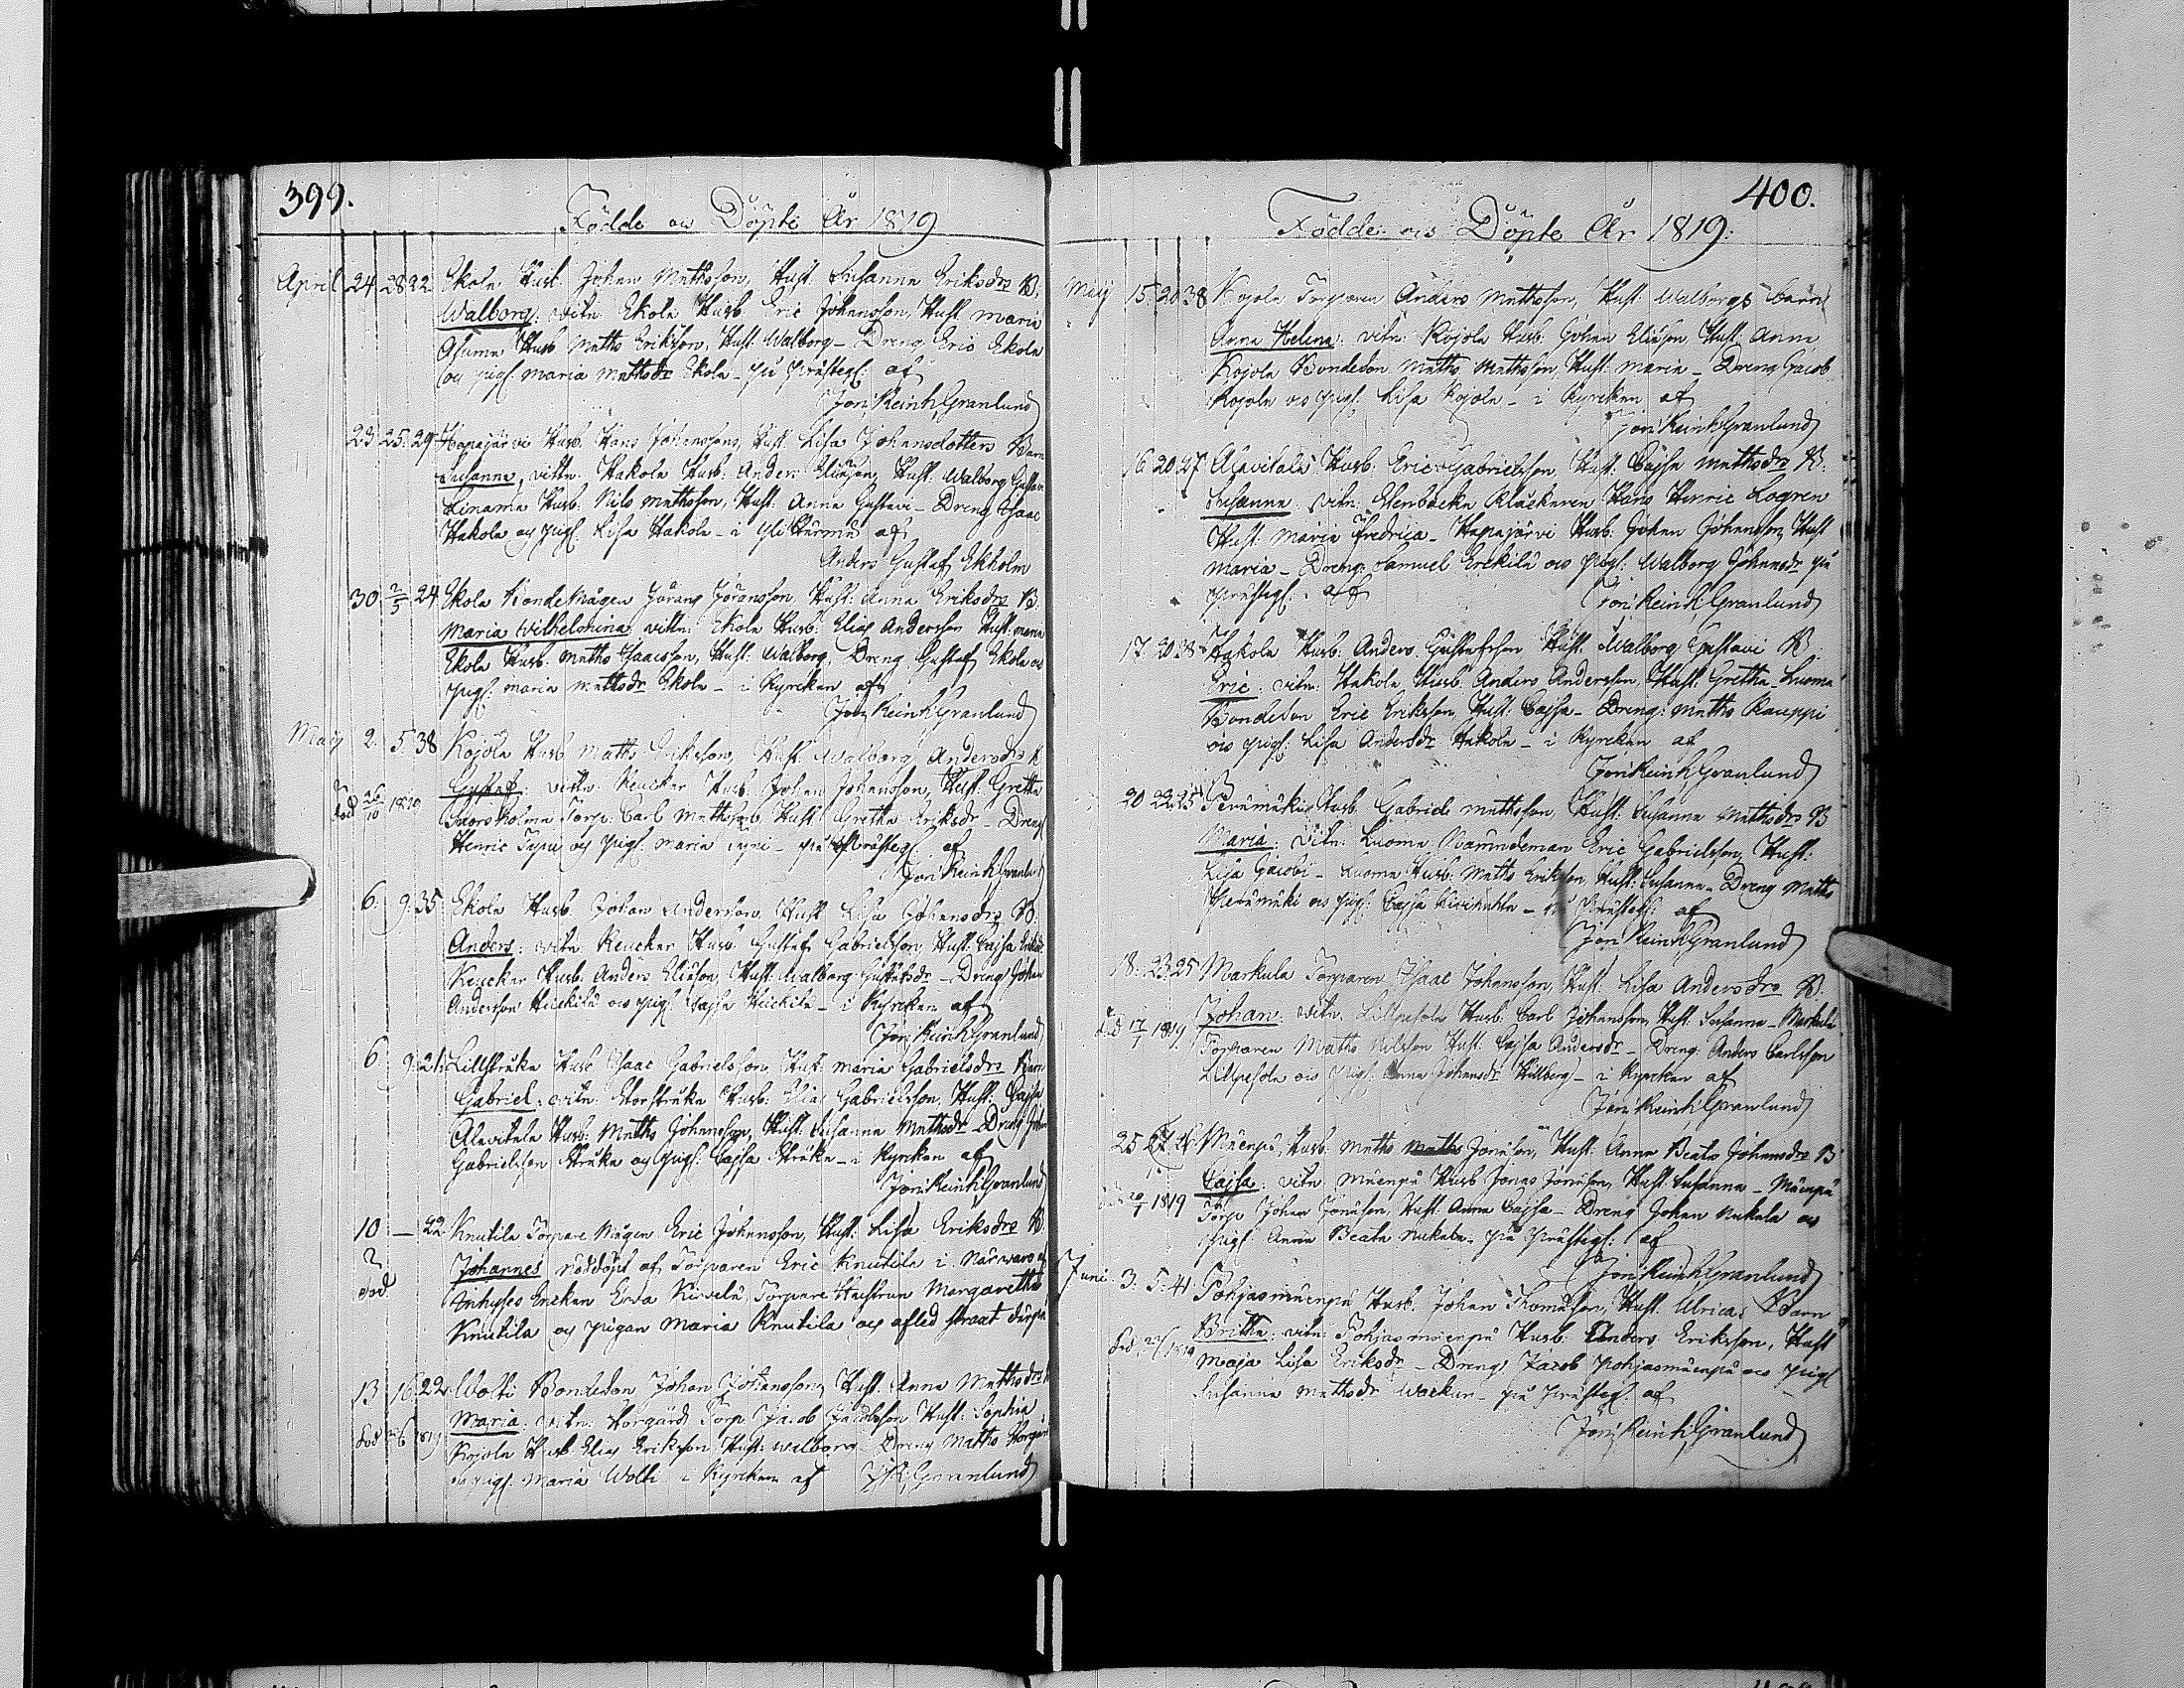 399.
Födde och Döpte År 1819
April 24. 28. 22. Ekola Husb. Johan Mathsson, Hust. Susanna Eriksdrs B.
Walborg: vitn: Ekola Husb. Eric Johansson, Hust. Maria
Husb Matts Eriksson, Hust. Walborg - Dreng Eric Ekola
og pig. Maria Mathsdr Ekola - på Prästeg: af
Jon: Reinh: Granlund
23. 25. 29. Hapajärvi Husb. Hans Johanssons, Hust. Lisa Johansdotters Barn
Susanna, vittn. Hakola Husb: Anders Eliasson, Hust: Walborg
Linama Husb. Nils Mathsson, Hust: Anna Gustavi - Dreng Isaac
Hakola og pig. Lisa Hakola - i af
Anders Gustaf Ekholm
30. 2/5 24. Ekola BondeMågen Göran Göransson, Hust: Anna Eriksdrs B.
Maria Wilhelmina vittn: Ekola Husb: Elias Andersson Hust. Maria
Ekola Husb. Matths Isaacsson, Hust: Walborg, Dreng Gustaf Ekola os
pig: Maria Mathsdr Ekola - i Kyrckan af
Jon: Reinh: Granlund
Maij 2. 5. 38 Kojola Husb Matts Eriksson, Hust. Walborg Andersdrs B
Gustaf: vittn. Reucker Husb. Johan Johansson, Hust: Gretha
död 26/10 1819 Torp. Carl Mathsson Hust: Gretha Eriksdr - Dreng
Henric og pig. Maria - på Prästeg. af
Jon: Reinh: Granlund
6. 9. 35. Ekola Husb. Johan Andersson, Hust Lisa Johansdrs B.
Anders: vitn Reucker Husb: Gustaf Gabrielsson, Hust: Cajsa
Reucker Husb. Anders Eliasson, Hust: Walborg Gustafsdr - Dreng Johan
Andersson os pig: Cajsa - i Kyrckan af
Jon: Reinh: Granlund
6 9. 21. Lillstråka Husb Isaac Gabrielsson, Hust: Maria Gabrielsdrs Barn
Gabriel: vitn: Storstråka Husb: Elias Gabrielsson, Hust: Cajsa
Alavitala Husb: Matths Johansson, Hust: Susanna Mathsdr Dreng
Gabrielsson Stråka og pig: Cajsa Stråka - i Kyrckan af
Jon: Reinh: Granlund
10 — 22 Knutila Torpare Mågen Eric Johansson, Hust: Lisa Eriksdrs B
Johannes nöddöpt af Torparen Eric Knutila i Närwaro af
död Inhyses Enckan Ewa Torpare Hustrun Margaretha
Knutila og Pigan Maria Knutila og afled straxt
13 16. 22 Wolti Bondeson Johan Johansson, Hust. Anna Mathsdrs
Maria: vitn: Torp Jacob Jacobsson Hust: Sophia
död 1819 Kojola Husb Elias Eriksson Hust: Walborg - Dreng Matths
os pig: Maria Wolti i Kyrckan af J: R: Granlund
400.
Födde os Döpte År 1819:
Maij 15. 20. 38 Kojola Torparen Anders Mathsson, Hust: Walborgs Barn
Anna Helena: vitn: Kojola Husb: Johan Eliasson Hust: Anna
Kojola Bondeson Matths Mathsson, Hust: Maria - Dreng Jacob
Kojola os pig: Lisa Kojola - i Kyrckan af
Jon: Reinh: Granlund
16. 20. 27 Alavitala Husb: Eric Gabrielsson Hust: Cajsa Mathsdrs B:
Susanna: vitn: Klåckaren Hans Henric Logren
Hust: Maria Fredrica - Hapajärvi Husb: Johan Johansson, Hust
Maria - Dreng: Samuel Erckilä os Pig: Walborg Johansdr på
Prästeg: af
Jon: Reinh: Granlund
17. 20. 38 Hakola Husb: Anders Gustafsson Hust: Walborg Gustavi B.
Eric: vitn: Hakola Husb: Anders Andersson, Hust: Gretha - Luoma
Bondeson Eric Eriksson, Hust: Cajsa - Dreng: Matths Kauppi
os pig: Lisa Andersdr Hakola - i Kyrckan af
Jon: Reinh: Granlund
20 22. 25 Perämäki Husb Gabriel Mathsson, Hust: Susanna Mathsdrs B
Maria: vitn: Luoma Nämndeman Eric Gabrielsson, Hust:
Lisa Jacobi - Luoma Husb: Matths Eriksson, Hust: Susanna - Dreng Matths
Perämäki os pig: Cajsa - på Prästeg: af
Jon: Reinh: Granlund
18. 23. 25 Markula Torparen Isaac Johansson, Hust: Lisa Andersdrs B.
död 17/7 1819 Johan: vitn: Husb. Carl Johansson, Hust. Susanna - Markula
Torparen Matths Nilsson Hust: Cajsa Andersdr - Dreng: Anders Carlsson
os Pig: Anna Johansdr Hillberg - i Kyrckan af
Jon: Reinh: Granlund
25 27. Mäenpä, Husb: Matths Jonasson, Hust: Anna Beata Johansdrs B
Cajsa: vitn: Mäenpä Husb Jonas Jonasson, Hust. Susanna - Mäenpä
1819 Torp Johan Jonasson, Hust. Anna Cajsa - Dreng Johan os
Pig Anna Beata - på Prästeg: af
Jon: Reinh: Granlund
Juni. 3. 5. 41 Pohjasmäenpä Husb. Johan Thomasson, Hust. Ulricas Barn
Britha: vitn: Pohjasmäenpä Husb: Anders Eriksson, Hust
död 1819 Maja Lisa Eriksdr - Dreng Jacob Pohjasmäenpä os pig
Susanna Mathsdr - på Prästeg: af
Jon: Reinh: Granlund